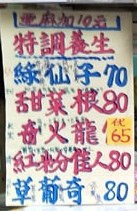 亞麻加10元
特調養生
綠仙子70
甜菜根80
奇火龍代65
紅粉佳人80
草葡奇80